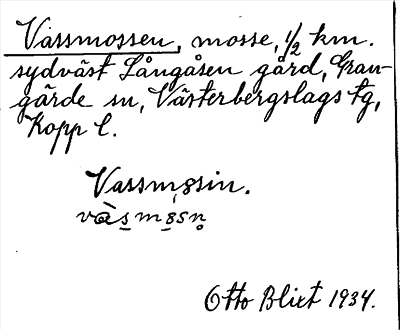 Vassmossen, mosse, 1/2 km.
sydväst Långåsen gård, Gran-
gärde sn, Västerbergslags tg,
Kopp l.
Vassmosin.
Otto Blixt 1934.